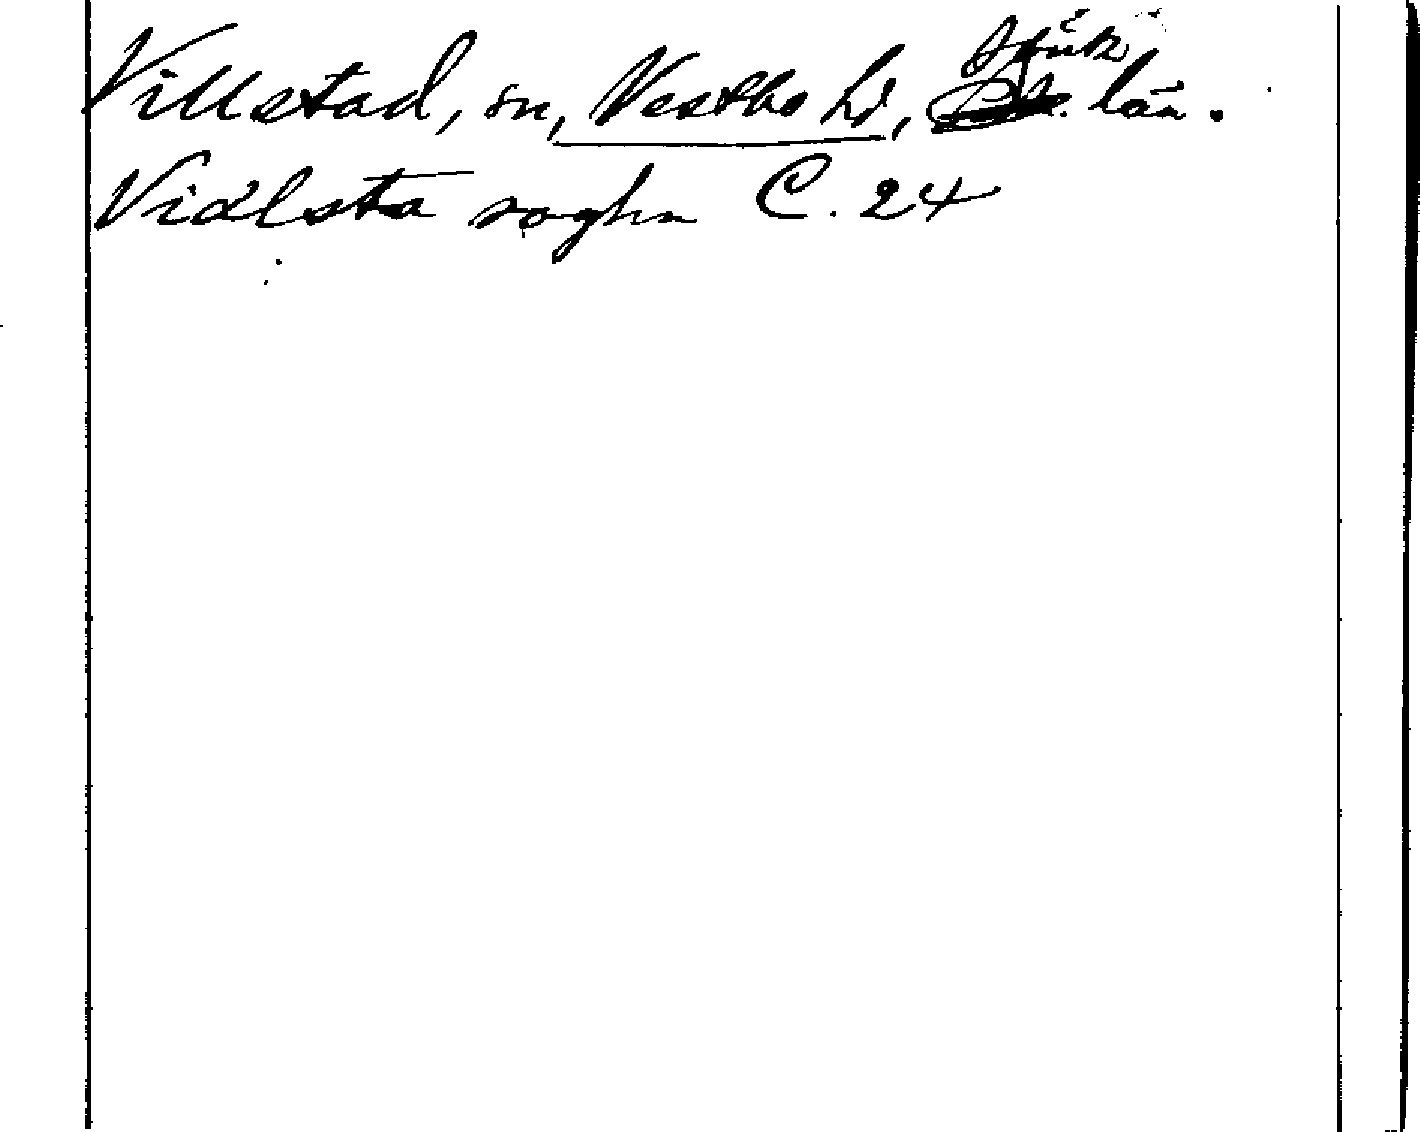 Villstad, sn, Vestbo hd, Jönk. län.
Vidlsta soghn C. 24